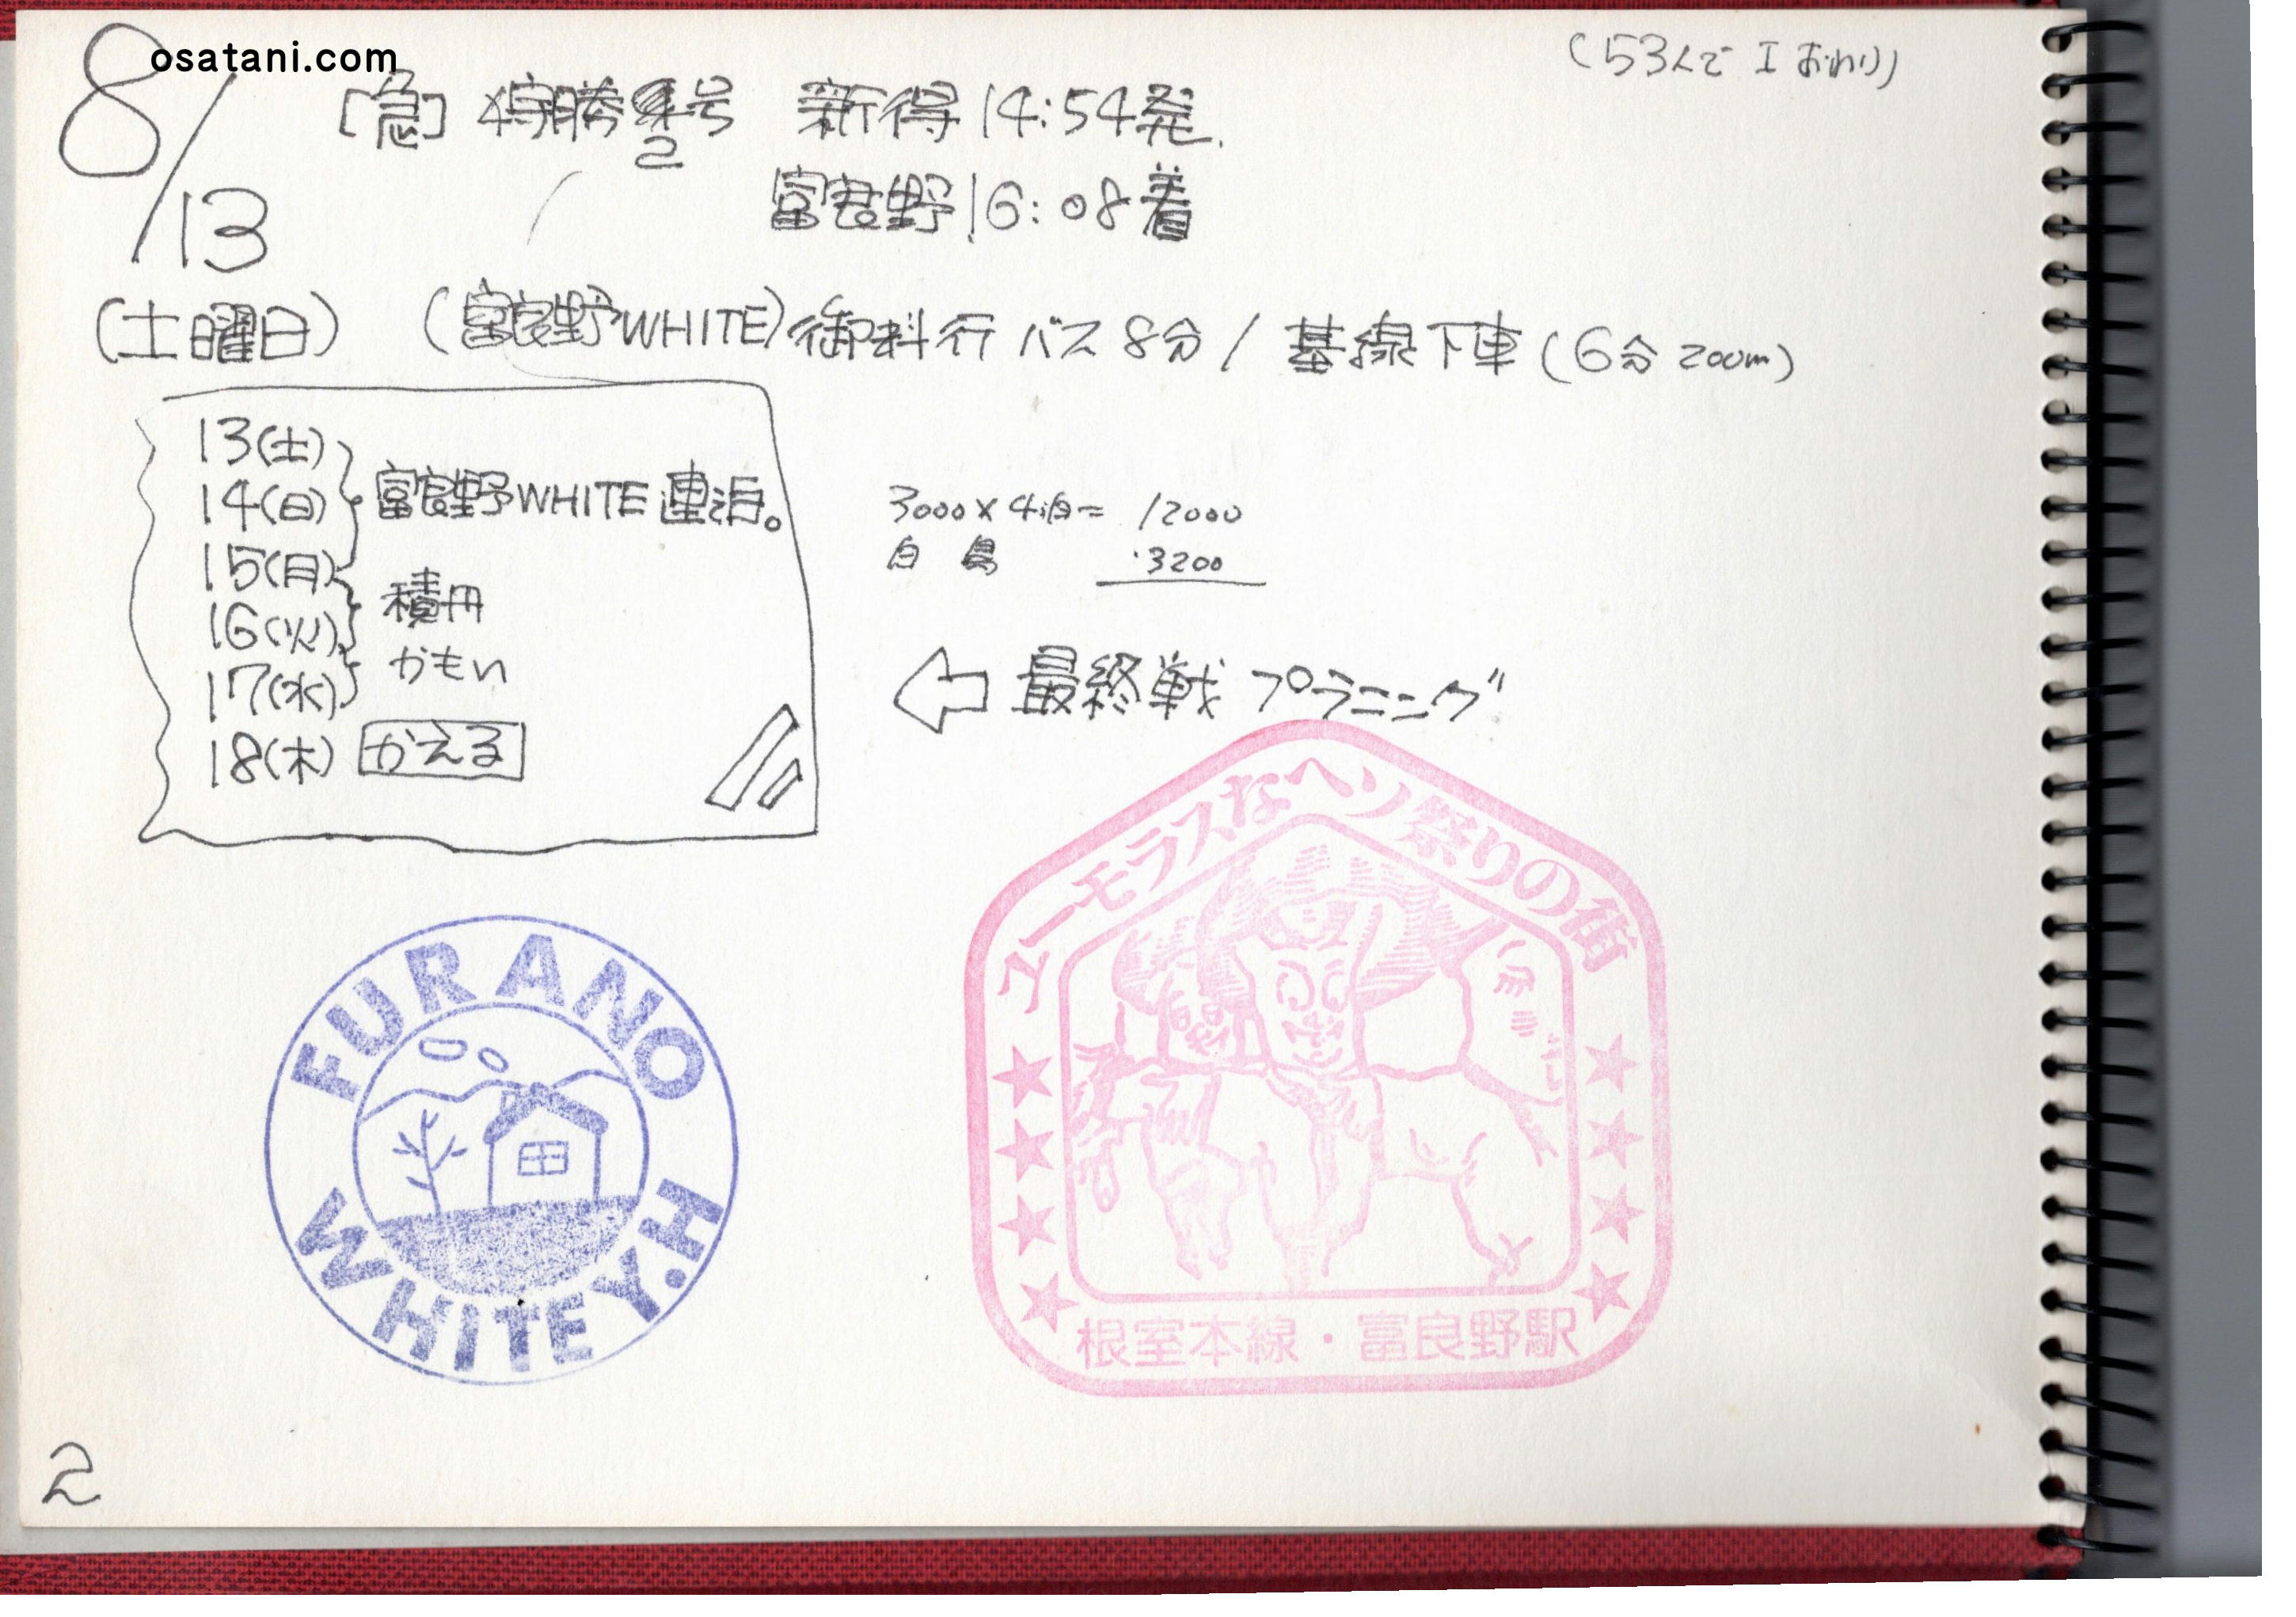 osatani.com
8/13
(土曜日)
(53人で I おわり)
[急] 狩勝2号 新得14:54発.
富良野16:08着
(富良野WHITE)御料行バス8分/基線下車(6分 200m)
13(土)
14(日)
15(月)
16(火)
17(水)
18(木)
富良野WHITE連泊。
積丹
かもい
かえる
3000×4泊=12000
白鳥 3200
⇦最終戦プラニング
FURANO
WHITE Y.H
ユーモラスなヘソ祭りの街
根室本線・富良野駅
2